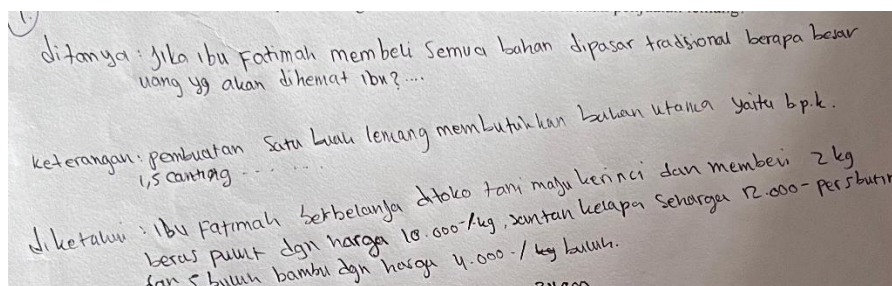 1.
ditanya : Jika ibu Fatimah membeli Semua bahan dipasar tradsional berapa besar
uang yg akan dihemat ibu?....
keterangan : pembuatan Satu buah lemang membutuhkan bahan utama yaitu b.p.k.
1,5 canting .......
diketahui : Ibu Fatimah berbelanja ditoko tani maju kerinci dan membeli 2 kg
beras pulut dgn harga 18.000-/kg, santan kelapa seharga 12.000- per 5 butir
dan 5 buluh bambu dgn harga 4.000-/ buluh.